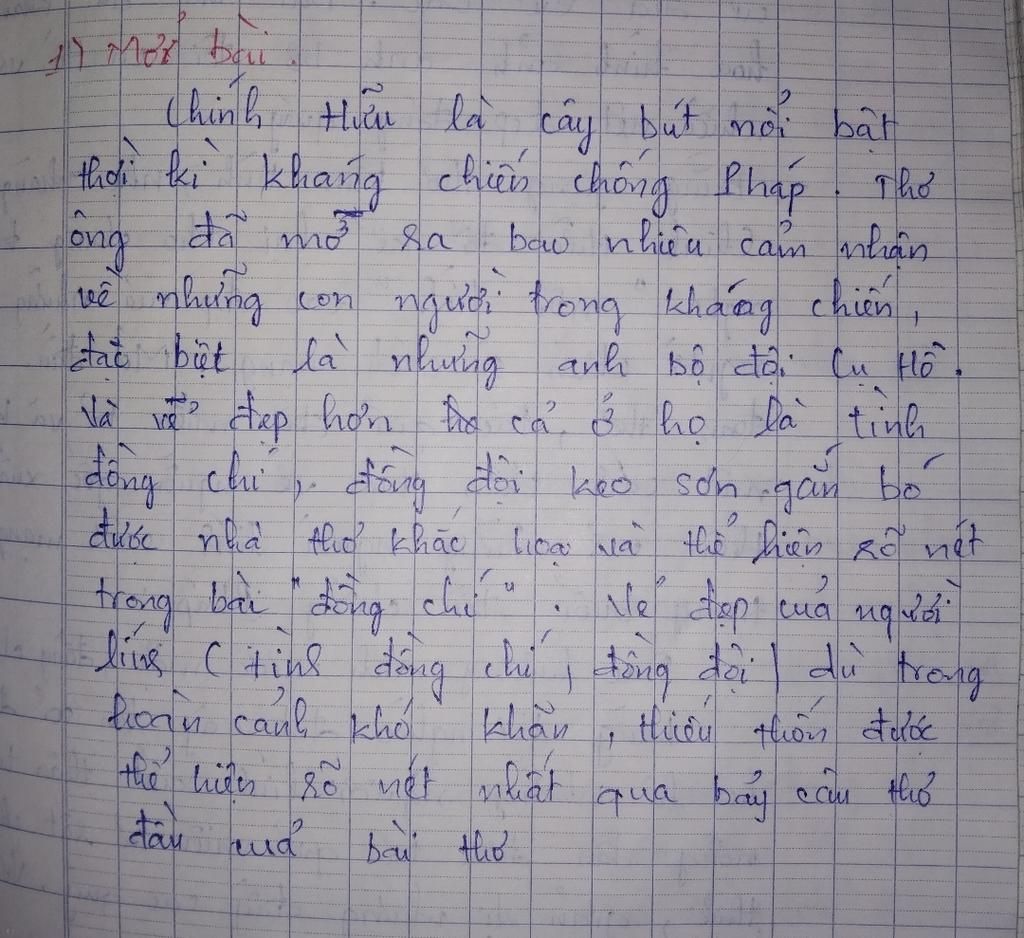 1) Mở bài.
Chính Hữu là cây bút nổi bật
thời kì kháng chiến chống Pháp. Thơ
ông đã mở ra bao nhiêu cảm nhận
về những con người trong kháng chiến,
đặc biệt là những anh bộ đội Cụ Hồ.
Và vẻ đẹp hơn cả ở họ là tình
đồng chí, đồng đội keo sơn gắn bó
được nhà thơ khắc họa và thể hiện rõ nét
trong bài "đồng chí". Vẻ đẹp của người
lính (tình đồng chí, đồng đội) dù trong
hoàn cảnh khó khăn, thiếu thốn được
thể hiện rõ nét nhất qua bảy câu thơ
đầu của bài thơ